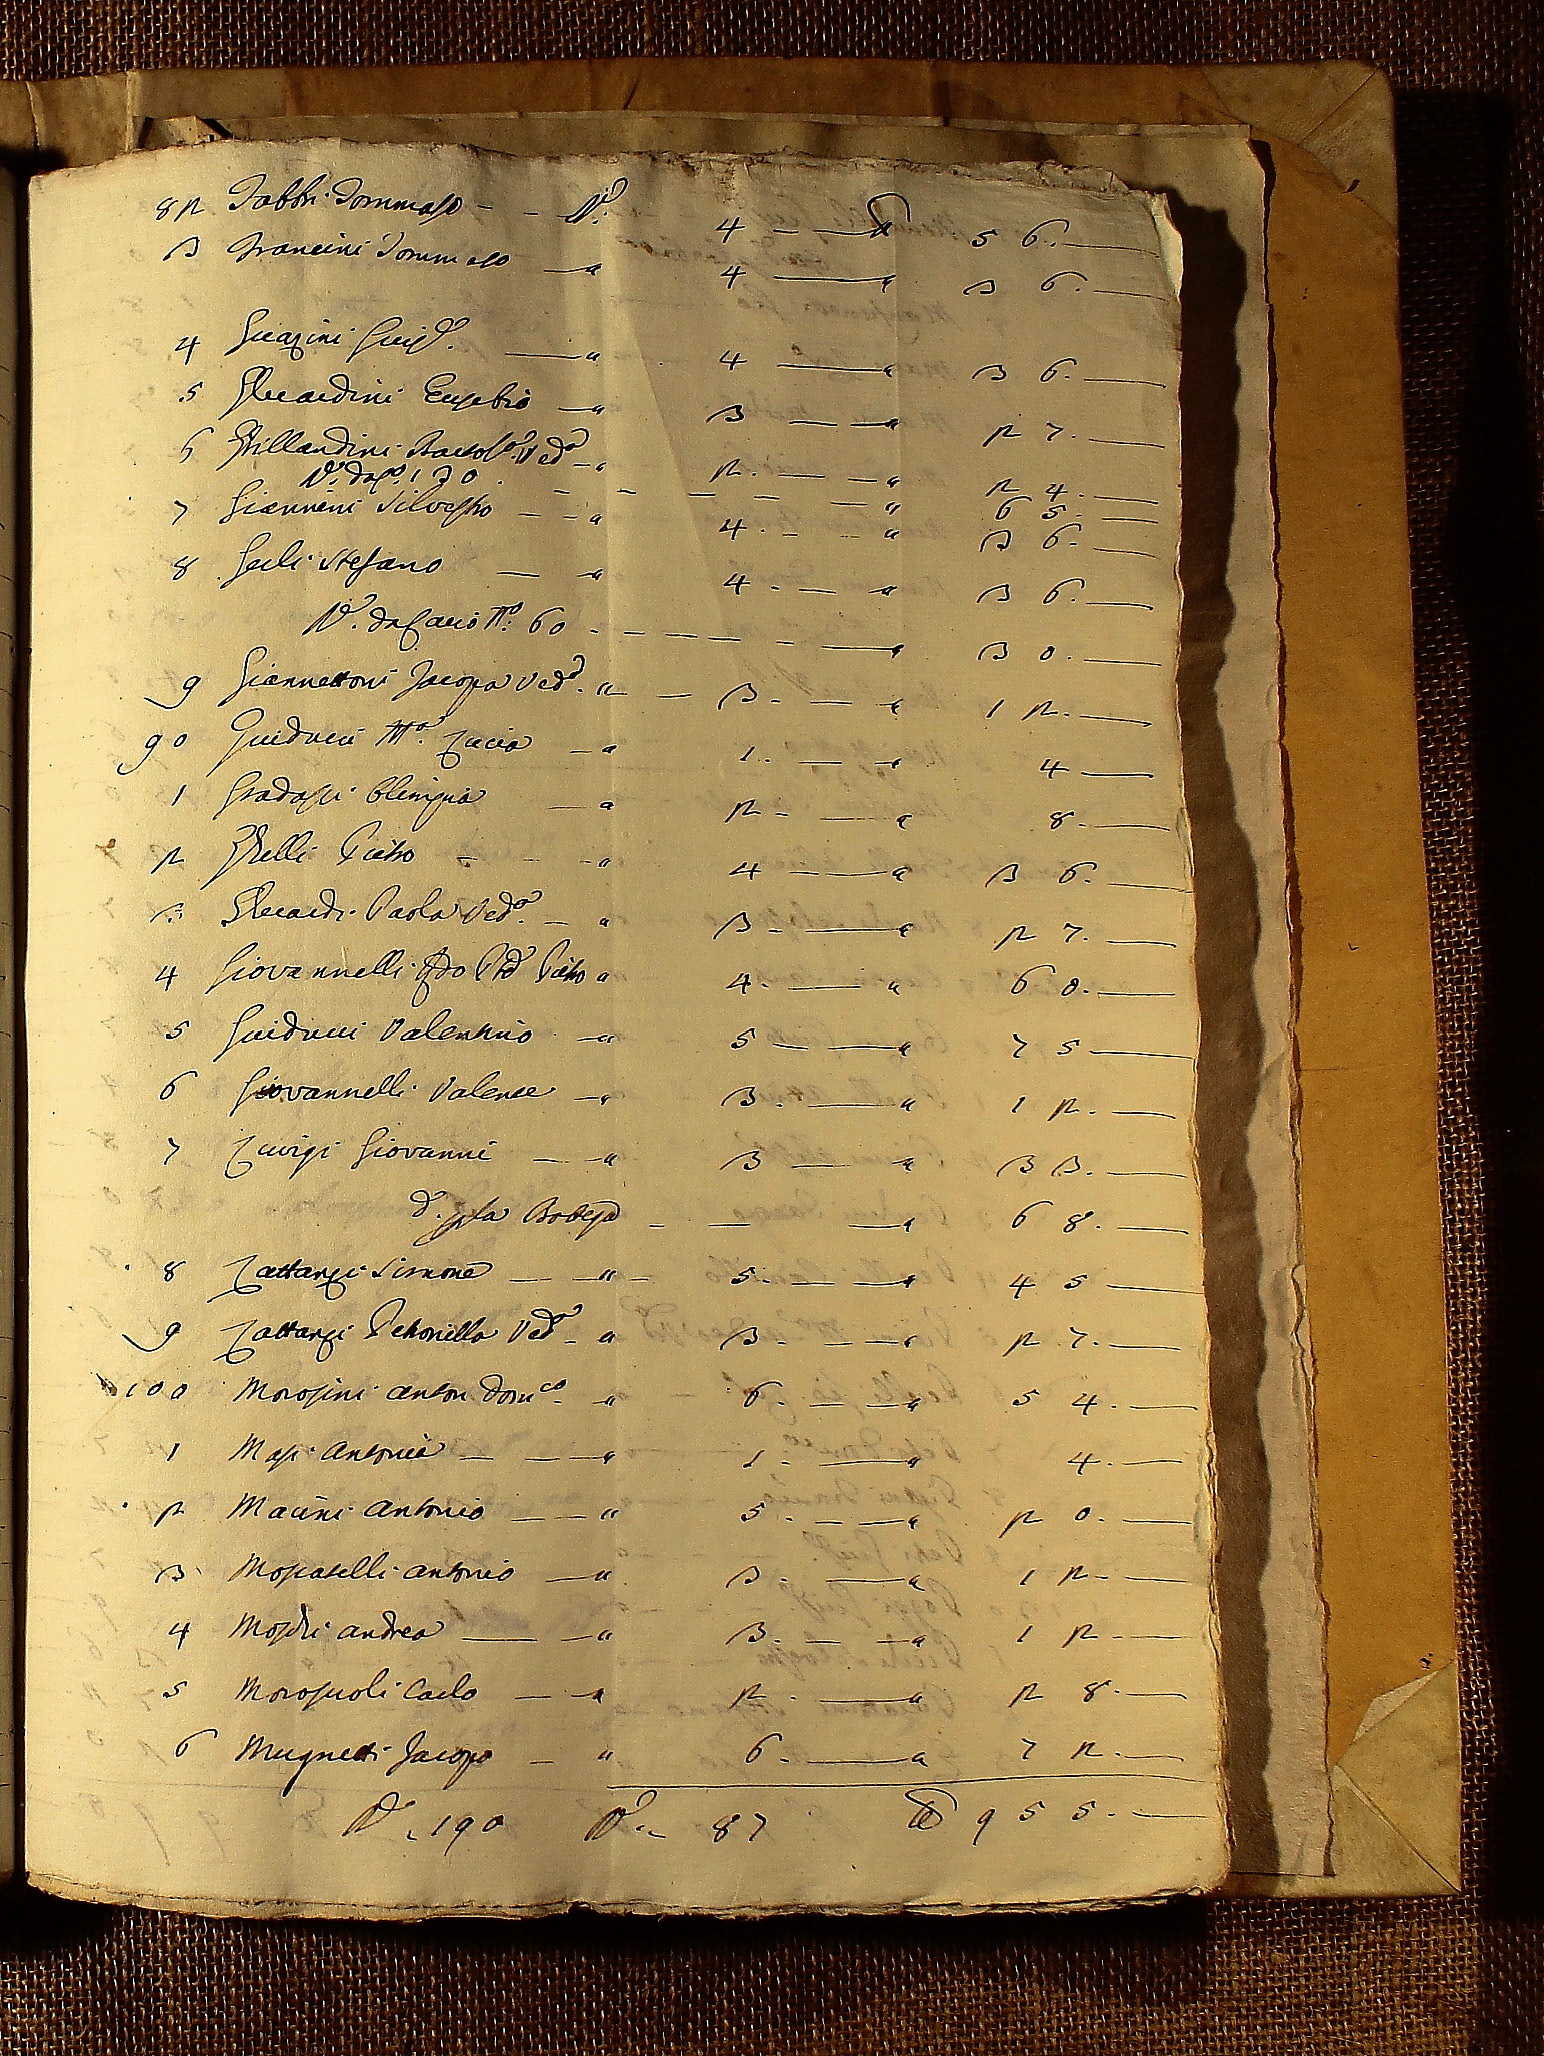 82 Fabbri Tommaso - - N.º 4 — ₶ 5 6. —
3 Francini Tommaso — " 4 — " 3 6. —
4 Guazini Giusº. — " 4 — " 3 6. —
5 Eusebio — " 3 — " 2 7. —
6 Vedª - " 2. — " 2 4. —
Nº. 130. - - - - " 6 5. —
7 Giannini Silvestro - - " 4. - - " 3 6. —
8 Geli Stefano — " 4. - — " 3 6. —
Nº. da Cario Nº. 60 - - - - - " 3 0. —
9 Giannettoni Jacopa Vedª. " — 3. - — " 1 2. —
90 Guiducci Mª. Lucia — " 1. — — " 4 —
1 — " 2 - — " 8. —
2 Pietro - - - " 4 — " 3 6. —
3 Paola Vedª. — " 3. — " 2 7. —
4 Giovannelli Pietro " 4. — " 6 0. —
5 Guiducci Valentino — " 5 — " 7 5 —
6 Giovannelli Valence — " 3. — " 1 2. —
7 Luigi Giovanni — — " 3 — " 3 3. —
dº. p la Bottega — — " 6 8. —
8 Lattanzi Simone — — " 5. - — " 4 5 —
9 Lattanzi Petronilla Vedª - " 3. - — " 2 7. —
100 Morosini Anton Domco. - " 6. — — " 5 4. —
1 Masi Antonia — - — " 1. — " 4. —
2 Macini Antonio — — " 5. - — " 2 0. —
3 Moscatelli Antonio — " 3. — " 1 2 —
4 Andrea — — " 3. — — " 1 2 —
5 Carlo — — " 2. — " 2 8. —
6 Mugnetti Jacopo — " 6. — " 7 2. —
Nº. 190 Nº. - 87 ₶ 9 5 5. —